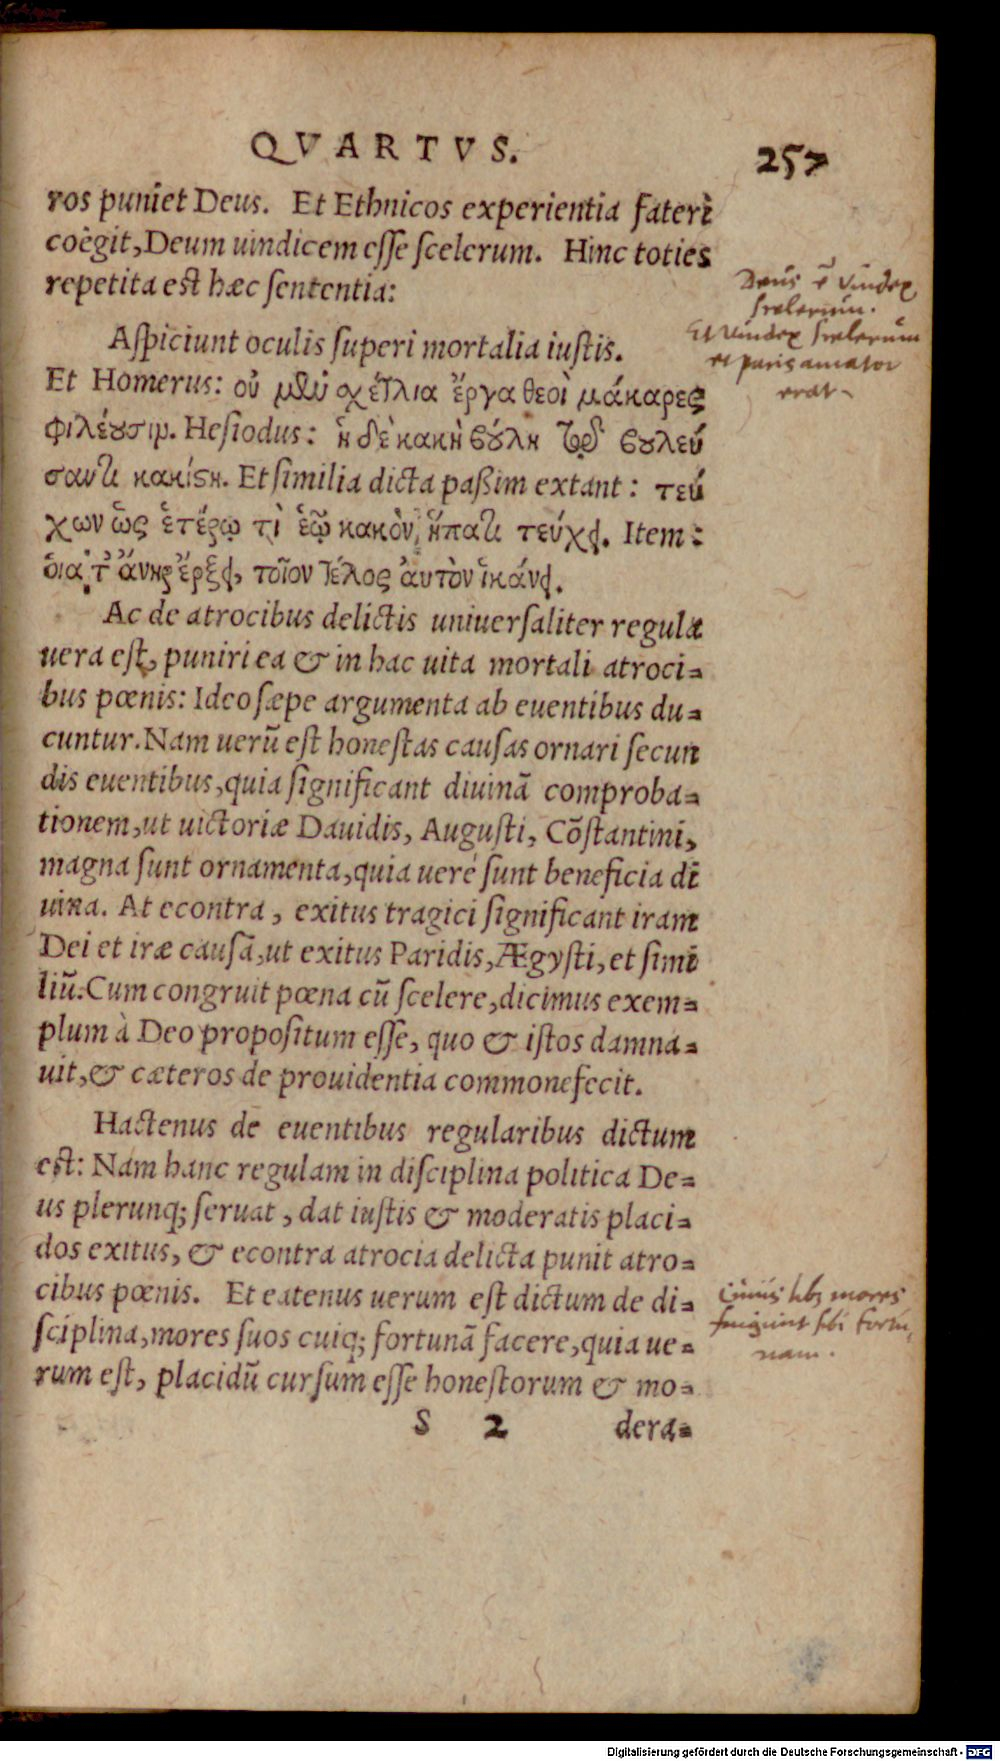 QVARTVS. 257
ros puniet Deus. Et Ethnicos experientia fateri
coëgit, Deum uindicem esse scelerum. Hinc toties
repetita est hæc sententia:
Aspiciunt oculis superi mortalia iustis.
Et Homerus: οὐ μὲν σχέτλια ἔργα θεοὶ μάκαρες
φιλέουσιν. Hesiodus: ἡ δὲ κακὴ βουλὴ τῷ βουλεύ
σαντι κακίστη. Et similia dicta paßim extant: τεύ
χων ὣς ἑτέρῳ τὶ ἑῷ κακὸν ἥπατι τεύχει. Item:
οἷα τ' ἀνὴρ ἔρξει, τοῖον τέλος ἀυτὸν ἱκάνει.
Ac de atrocibus delictis uniuersaliter regula
uera est, puniri ea & in hac uita mortali atroci-
bus pœnis: Ideo sæpe argumenta ab euentibus du-
cuntur. Nam uerũ est honestas causas ornari secun
dis euentibus, quia significant diuinã comproba-
tionem, ut uictoriæ Dauidis, Augusti, Cõstantini,
magna sunt ornamenta, quia uerè sunt beneficia di
uina. At econtra, exitus tragici significant iram
Dei et iræ causã, ut exitus Paridis, Ægysti, et simi
liũ. Cum congruit pœna cũ scelere, dicimus exem-
plum à Deo propositum esse, quo & istos damna-
uit, & cæteros de prouidentia commonefecit.
Hactenus de euentibus regularibus dictum
est: Nam hanc regulam in disciplina politica De-
us plerunq; seruat, dat iustis & moderatis placi-
dos exitus, & econtra atrocia delicta punit atro-
cibus pœnis. Et eatenus uerum est dictum de di-
sciplina, mores suos cuiq; fortunã facere, quia ue-
rum est, placidũ cursum esse honestorum & mo-
S 2 dera-
Deus ē vindex
scelerum.
Et vindex scelerum
et pacis amator
erat
mores
fingunt sibi fortu
nam.
Digitalisierung gefördert durch die Deutsche Forschungsgemeinschaft - DFG